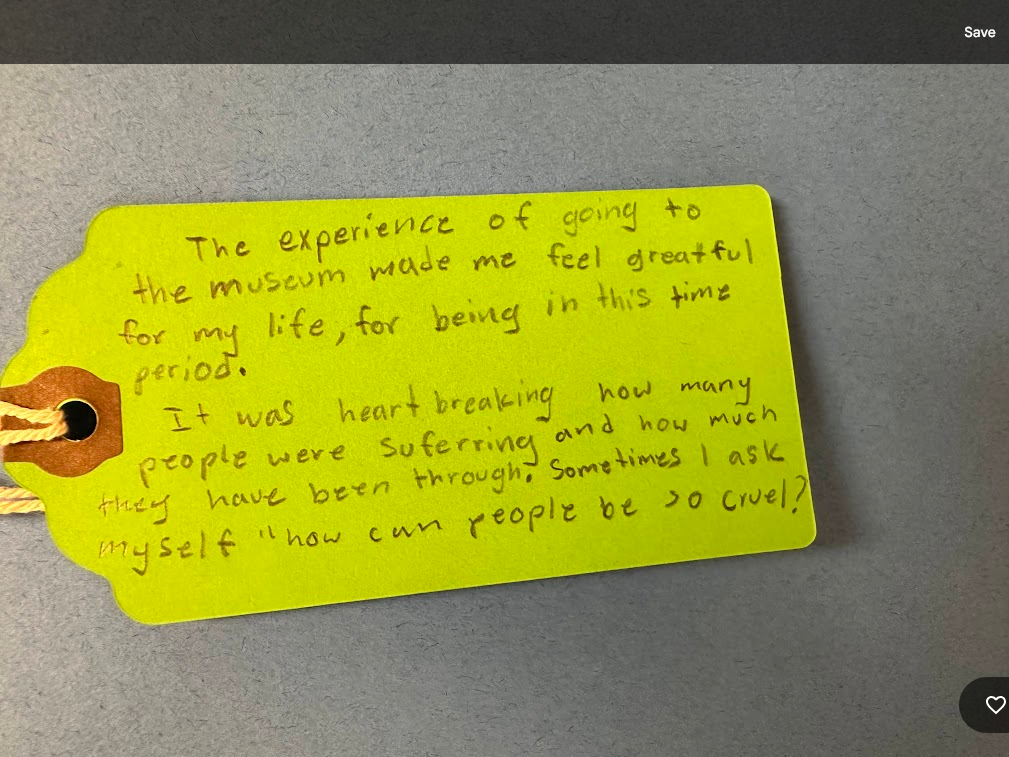 Save
The experience of going to
the museum made me feel greatful
for my life, for being in this time
period.
It was heart breaking how many
people were suferring and how much
they have been through. Sometimes I ask
myself "how can people be so cruel?